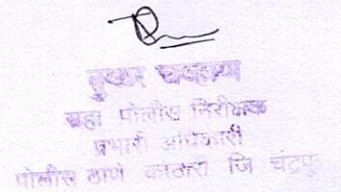 तुषार चव्हाण
सहा पोलीस निरीक्षक
प्रभारी अधिकारी
पोलीस ठाणे कोठारी जि चंद्रपू